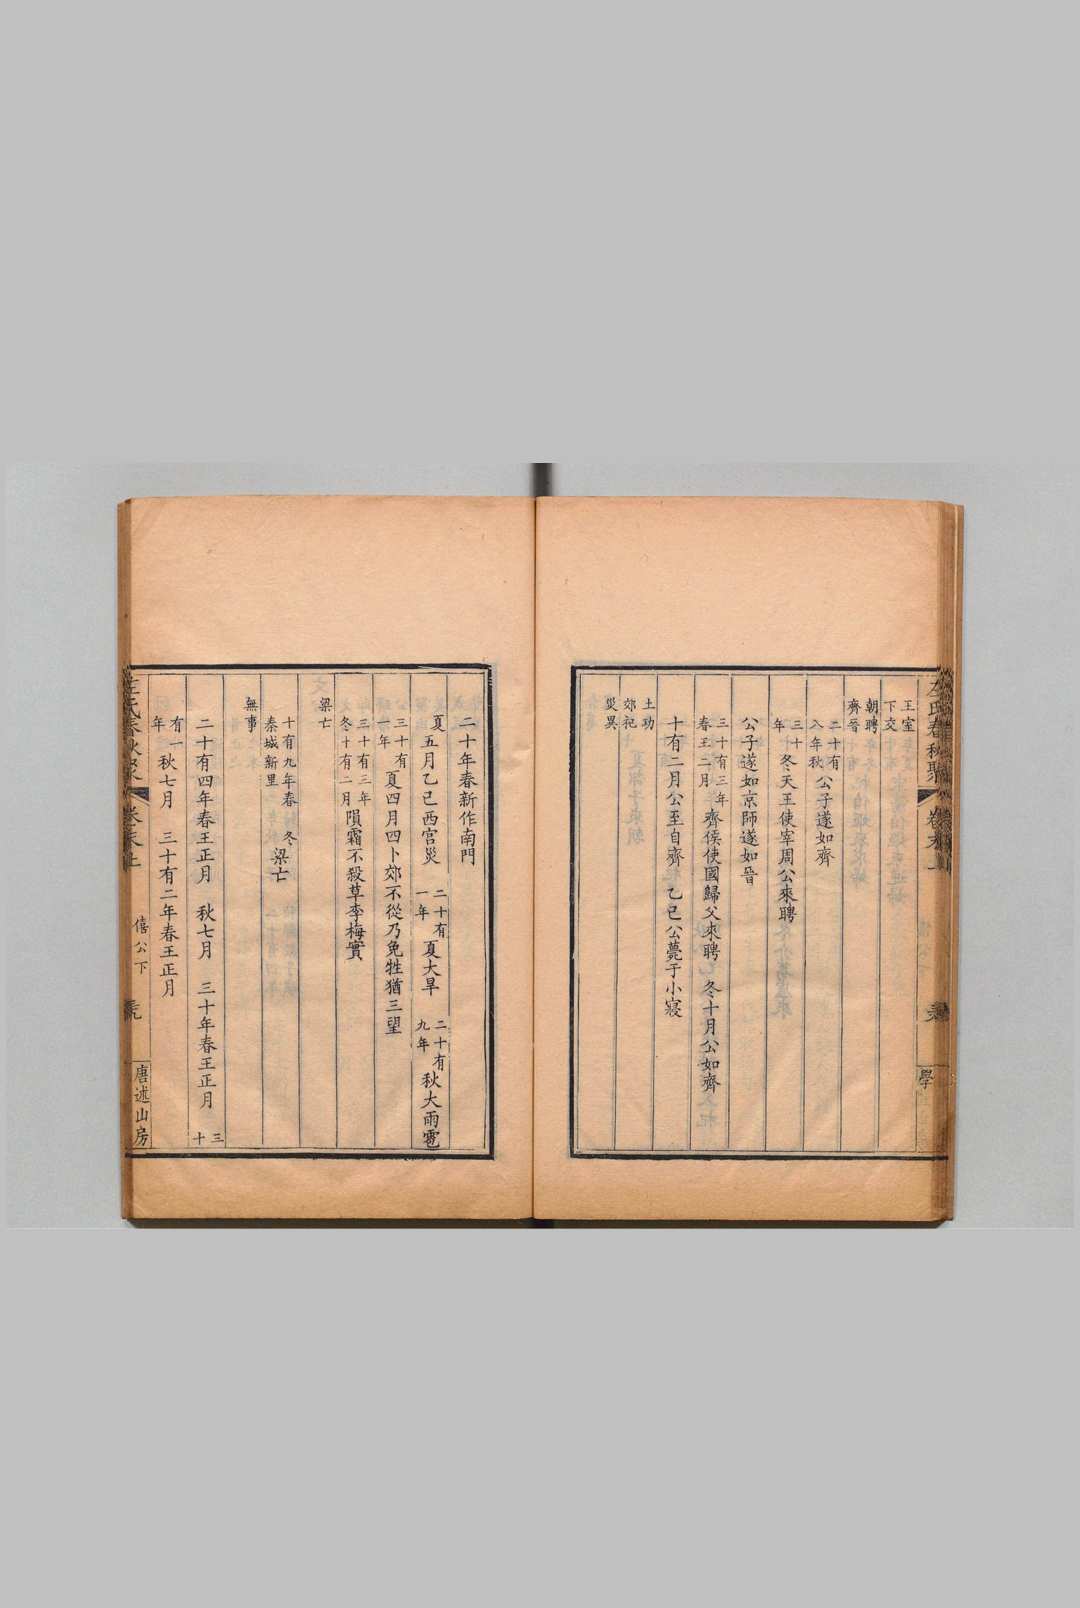 王室
下交
朝聘
齊晉
二十有
八年秋
公子遂如齊
三十
年
冬天王使宰周公來聘
公子遂如京師遂如晉
三十有三年
春王二月
齊侯使國歸父來聘　冬十月公如齊
十有二月公至自齊　乙巳公薨于小寢
土功
郊祀
災異
學
二十年春新作南門
夏
五月乙巳西宮災
二十有
一年
夏大旱
二十有
九年
秋大雨雹
三十有
一年
夏四月四卜郊不從乃免牲猶三望
三十有三年
冬十有二月
隕霜不殺草李梅實
梁亡
十有九年春
秦城新里
冬
梁亡
無事
二十有四年春王正月　秋七月　三十年春王正月
三
十
有一
年
秋七月　三十有二年春王正月
左氏春秋聚
卷末上
僖公下
唐述山房